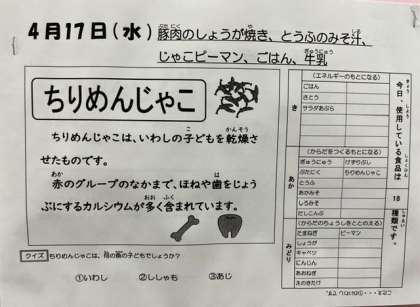 4月17日(水)
豚肉のしょうが焼き、とうふのみそ汁、
じゃこピーマン、ごはん、牛乳
ちりめんじゃこ
ちりめんじゃこは、いわしの子どもを乾燥さ
せたものです。
赤のグループのなかまで、ほねや歯をじょう
ぶにするカルシウムが多く含まれています。
クイズ ちりめんじゃこは、何の魚の子どもでしょうか?
①いわし ②ししゃも ③あじ
今日、使用している食品は
18
種類です。
き
(エネルギーのもとになる)
ごはん
さとう
サラダあぶら
あか
(からだをつくるもとになる)
ぎゅうにゅう けずりぶし
ぶたにく ちりめんじゃこ
とうふ
あかみそ
しろみそ
だしこんぶ
みどり
(からだのちょうしをととのえる)
たまねぎ ピーマン
しょうが
キャベツ
にんじん
あおねぎ
えのきたけ